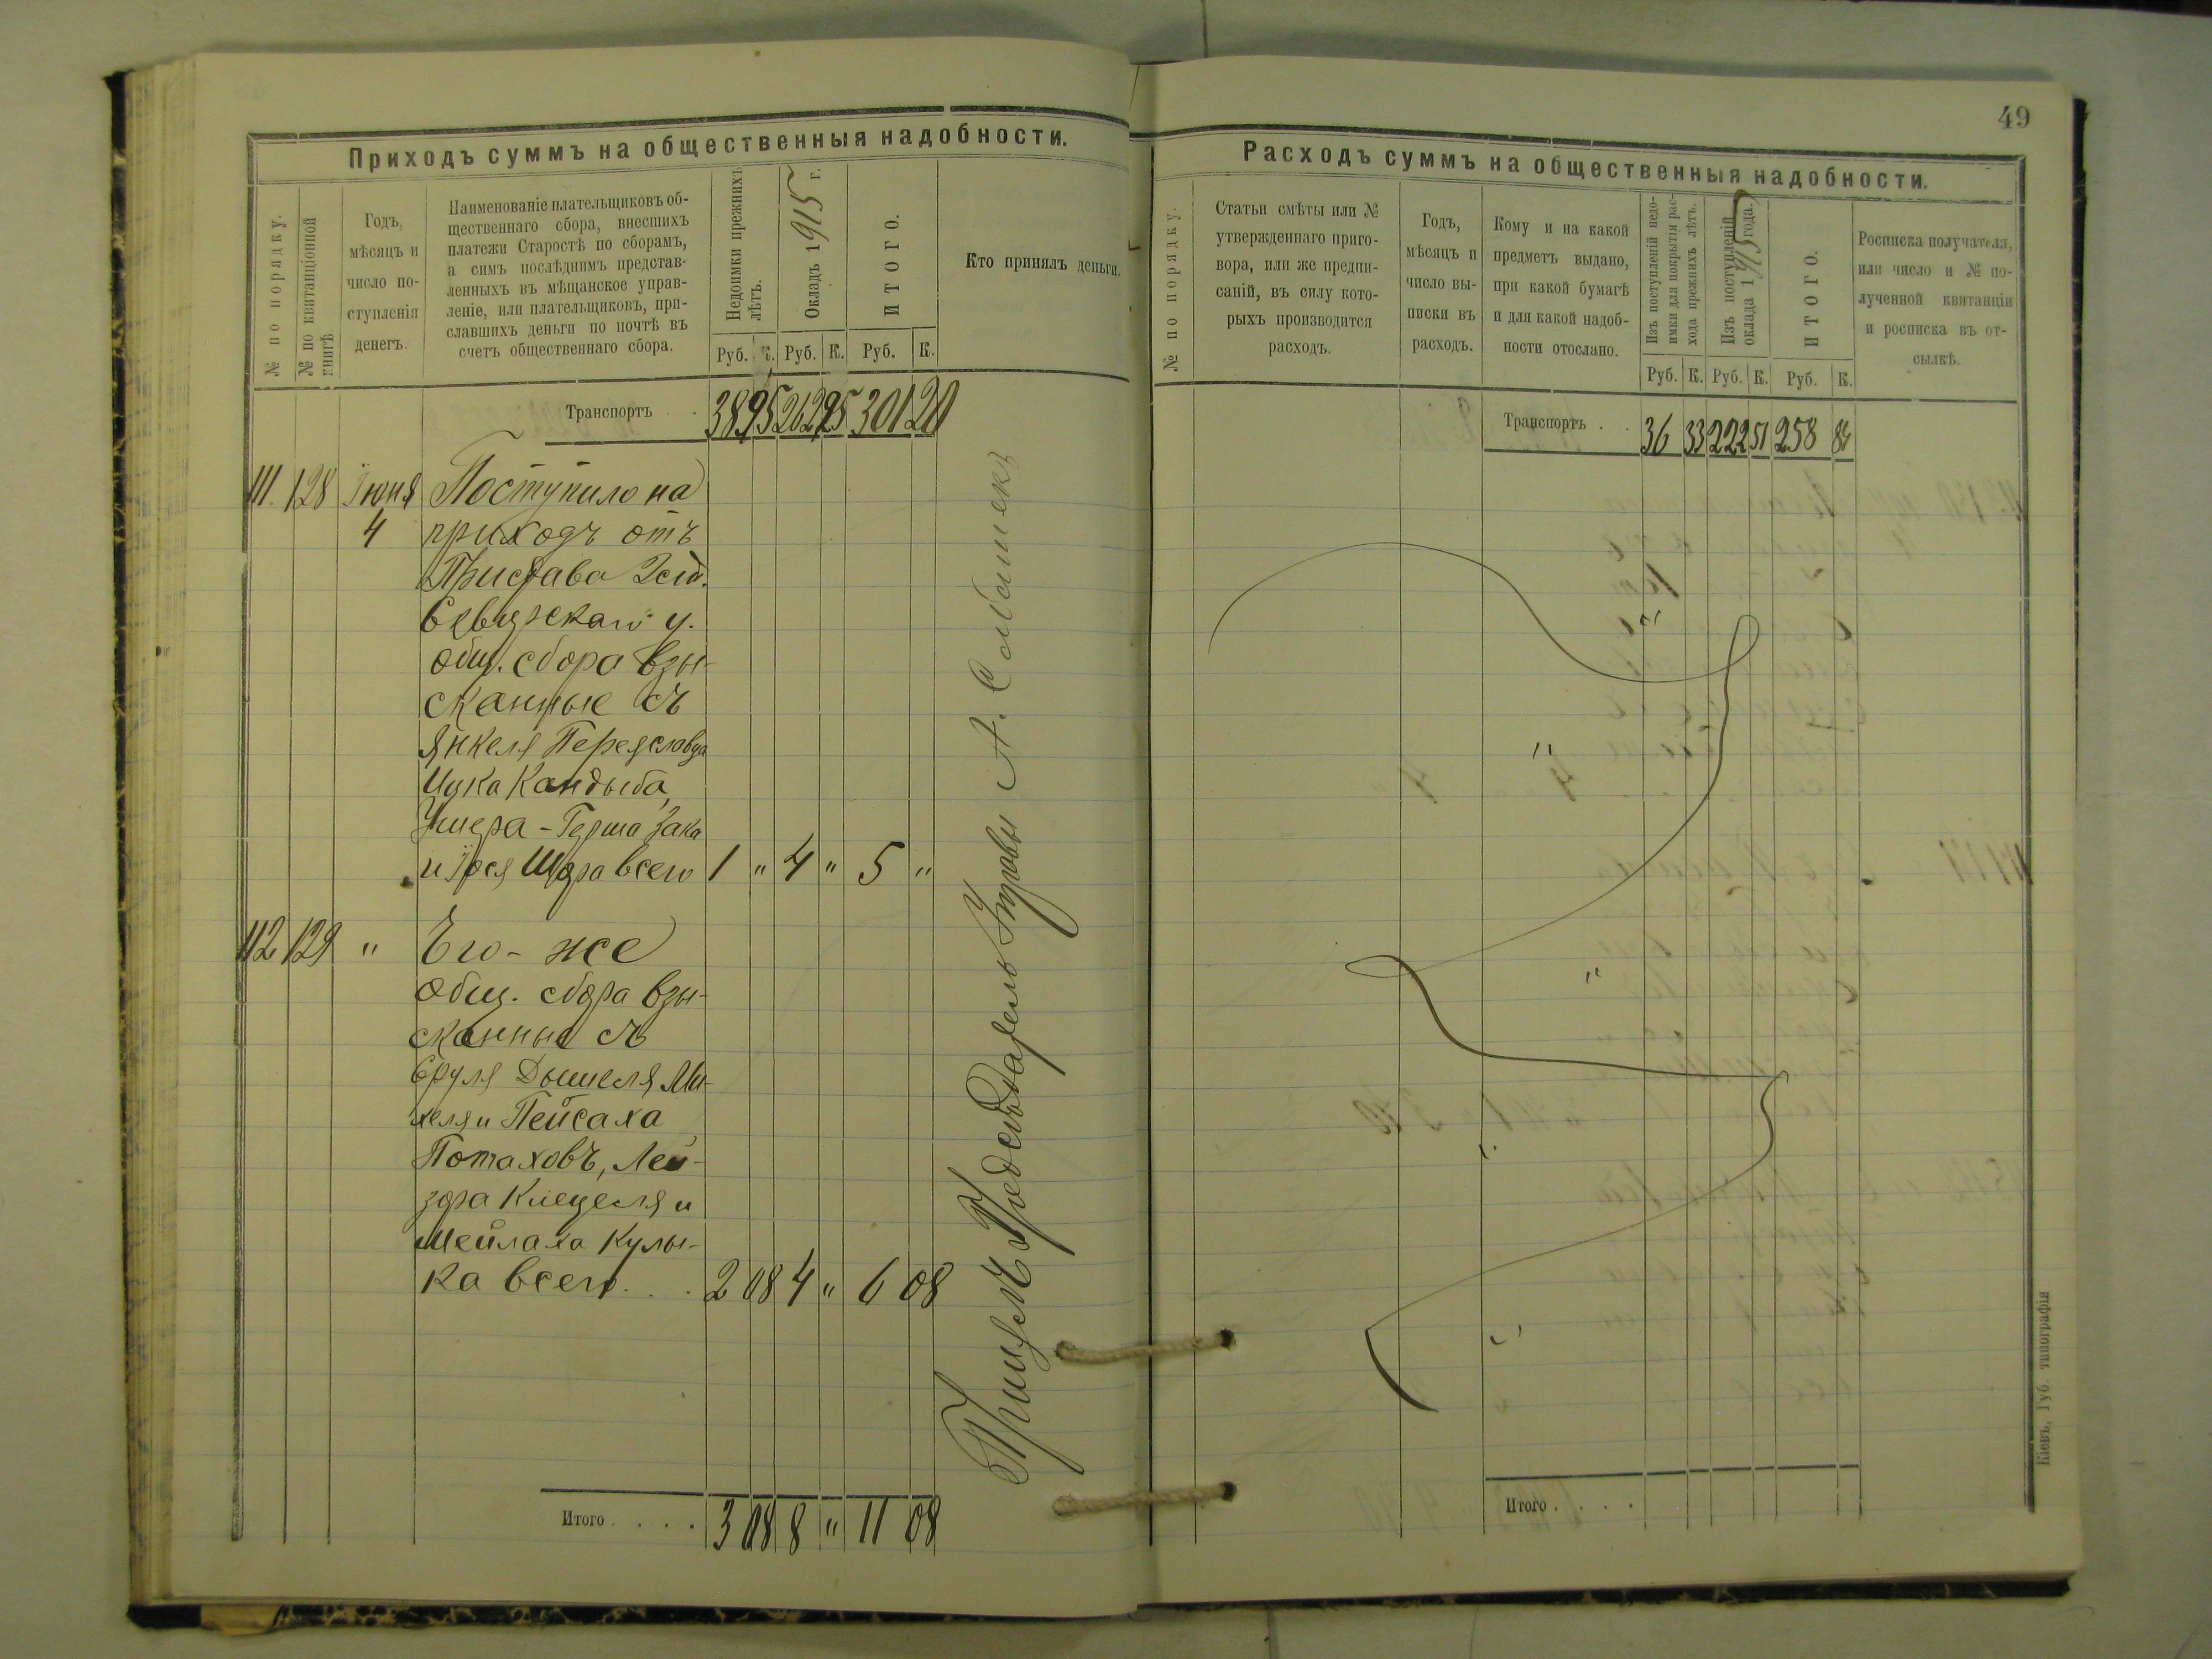 Приходъ суммъ на общественныя надобности.
№ по порядку.
№ по квитанціонной
книгѣ
Годъ,
мѣсяцъ и
число по-
ступленія
денегъ.
Наименованіе плательщиковъ об-
щественнаго сбора, внесшихъ
платежи Старостѣ по сборамъ,
а симъ послѣднимъ представ-
ленныхъ въ мѣщанское управ-
леніе, или плательщиковъ, при-
славшихъ деньги по почтѣ въ
счетъ общественнаго сбора.
Недоимки прежнихъ
лѣтъ.
Окладъ 1915 г.
ИТОГО.
Кто принялъ деньги.
Руб. К. Руб. К. Руб. К.
Транспортъ . 38 95 262 25 301 20
111 128 Іюня Поступило на
4 приходъ отъ
Пристава 2 ст.
общ. сбора взы-
сканные съ
Янкеля Переяславца
Ицка Кандыба,
Умера-Герша Зака
и Іося Шора всего 1 " 4 " 5 "
112 129 " Его-же
общ. сбора взы-
сканные съ
Сруля Дышеля Ми-
хеля и Пейсаха
Потаховъ, Лей-
зора Клецеля и
Мейлаха Кулы-
ка всего . . . 2 08 4 " 6 08
Итого . . . . 3 08 8 " 11 08
Предсѣдатель Управы А.
49
Расходъ суммъ на общественныя надобности.
№ по порядку.
Статьи смѣты или №
утвержденнаго приго-
вора, или же предпи-
саній, въ силу кото-
рыхъ производится
расходъ.
Годъ,
мѣсяцъ и
число вы-
писки въ
расходъ.
Кому и на какой
предметъ выдано,
при какой бумагѣ
и для какой надоб-
ности отослано.
Изъ поступленій недо-
имки для покрытія рас-
хода прежнихъ лѣтъ.
Изъ поступленій
оклада 1915 года.
ИТОГО.
Росписка получателя,
или число и № по-
лученной квитанціи
и росписка въ от-
сылкѣ.
Руб. К. Руб. К. Руб. К.
Транспортъ . . 36 33 222 51 258 84
Итого . . . .
Кіевъ, Губ. типографія